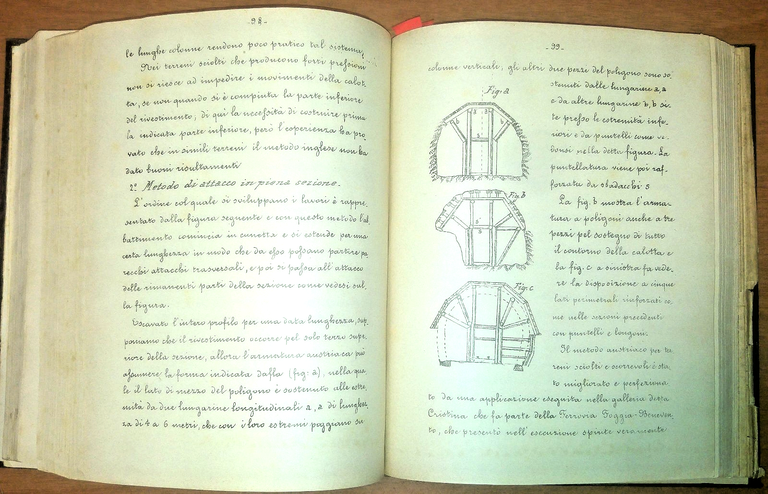 -98-
le lunghe colonne rendono poco pratico tal sistema,
Nei terreni sciolti che producono forti pressioni
non si riesce ad impedire i movimenti della calot,
ta, se non quando si è compiuta la parte inferiore
del rivestimento, di qui la necessità di costruire prima
la indicata parte inferiore, però l'esperienza ha pro,
vato che in simili terreni il metodo inglese non ha
dato buoni risultamenti
2º Metodo di attacco in piena sezione.
L'ordine col quale si sviluppano i lavori è rappre,
sentato dalla figura seguente e con questo metodo l'ab
battimento comincia in cunetta e si estende per una
certa lunghezza in modo che da esso possano partire pa,
recchi attacchi trasversali, e poi si passa all'attacco
delle rimanenti parti della sezione come vedesi sul,
la figura.
Escavato l'intero profilo per una data lunghezza, sup,
poniamo che il rivestimento occorre pel solo terzo supe,
riore della sezione, allora l'armatura austriaca può
assumere la forma indicata dalla (fig: a), nella qua,
le il lato di mezzo del poligono è sostenuto alle estre,
mità da due lungarine longitudinali a, a di lunghez,
za di 4 a 6 metri, che con i loro estremi poggiano su
-99-
colonne verticali, gli altri due pezzi del poligono sono so,
stenuti dalle lungarine a, a
e da altre lungarine b, b si,
te presso le estremità infe,
riori e da puntelli come ve,
donsi nella detta figura. La
puntellatura viene poi raf,
forzata da sbadacchi s
La fig. b mostra l'arma,
tura a poligoni anche a tre
pezzi pel sostegno di tutto
il contorno della calotta e
la fig. c a sinistra fa vede,
re la disposizione a cinque
lati perimetrali rinforzati co,
me nelle sezioni precedenti
con puntelli e longoni.
Il metodo austriaco per te,
reni sciolti e scorrevoli è sta,
to migliorato e perfeziona
to da una applicazione eseguita nella galleria detta
Cristina che fa parte della Ferrovia Foggia-Beneven,
to, che presentò nell'esecuzione spinte veramente
Fig. a
Fig. b
Fig. c